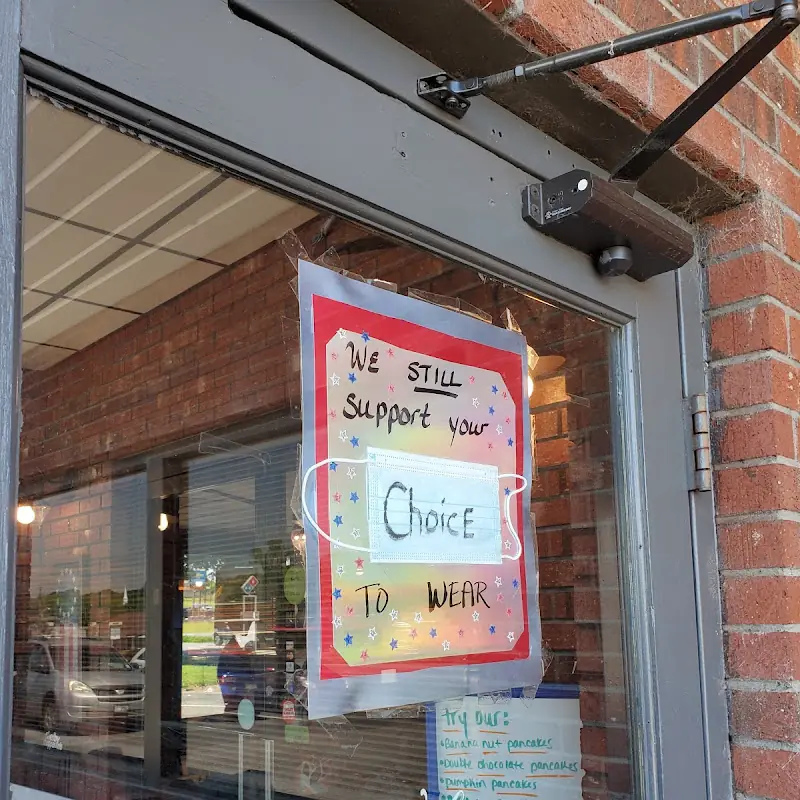 WE STILL
Support your
Choice
TO WEAR
try our:
• Banana nut pancakes
• Double chocolate pancakes
• pumpkin pancakes